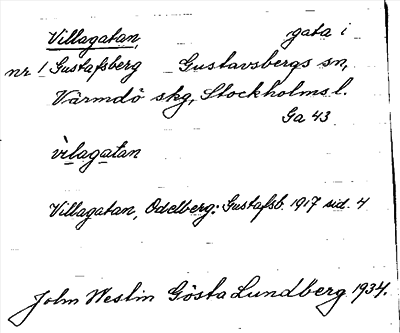 Villagatan, gata i
nr 1 Gustafsberg Gustavsbergs sn,
Värmdö skg, Stockholms l.
Ga 43
vìlagatan
Villagatan, Odelberg: Gustafsb. 1917 sid. 4
John Westin Gösta Lundberg 1934.